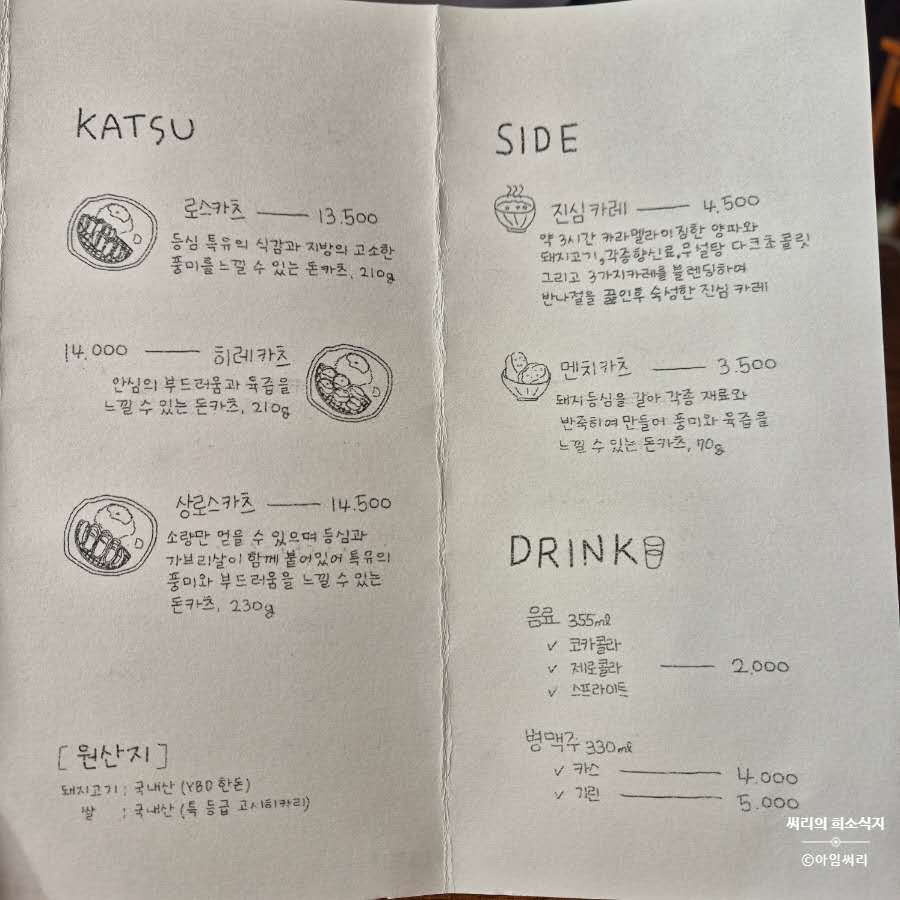 KATSU
로스카츠 — 13.500
등심 특유의 식감과 지방의 고소한
풍미를 느낄 수 있는 돈카츠, 210g
14.000 — 히레카츠
안심의 부드러움과 육즙을
느낄 수 있는 돈카츠, 210g
상로스카츠 — 14.500
소량만 얻을 수 있으며 등심과
가브리살이 함께 붙어있어 특유의
풍미와 부드러움을 느낄 수 있는
돈카츠, 230g
[원산지]
돼지고기 : 국내산 (YBD 한돈)
쌀 : 국내산 (특 등급 고시히카리)
SIDE
진심카레 — 4.500
약 3시간 카라멜라이징한 양파와
돼지고기, 각종향신료, 무설탕 다크초콜릿
그리고 3가지카레를 블렌딩하여
반나절을 끓인후 숙성한 진심 카레
멘치카츠 — 3.500
돼지등심을 갈아 각종 재료와
반죽하여 만들어 풍미와 육즙을
느낄 수 있는 돈카츠, 70g
DRINK
음료 355ml
✓ 코카콜라
✓ 제로콜라 — 2.000
✓ 스프라이트
병맥주 330ml
✓ 카스 — 4.000
✓ 기린 — 5.000
써리의 희소식지
©아임써리